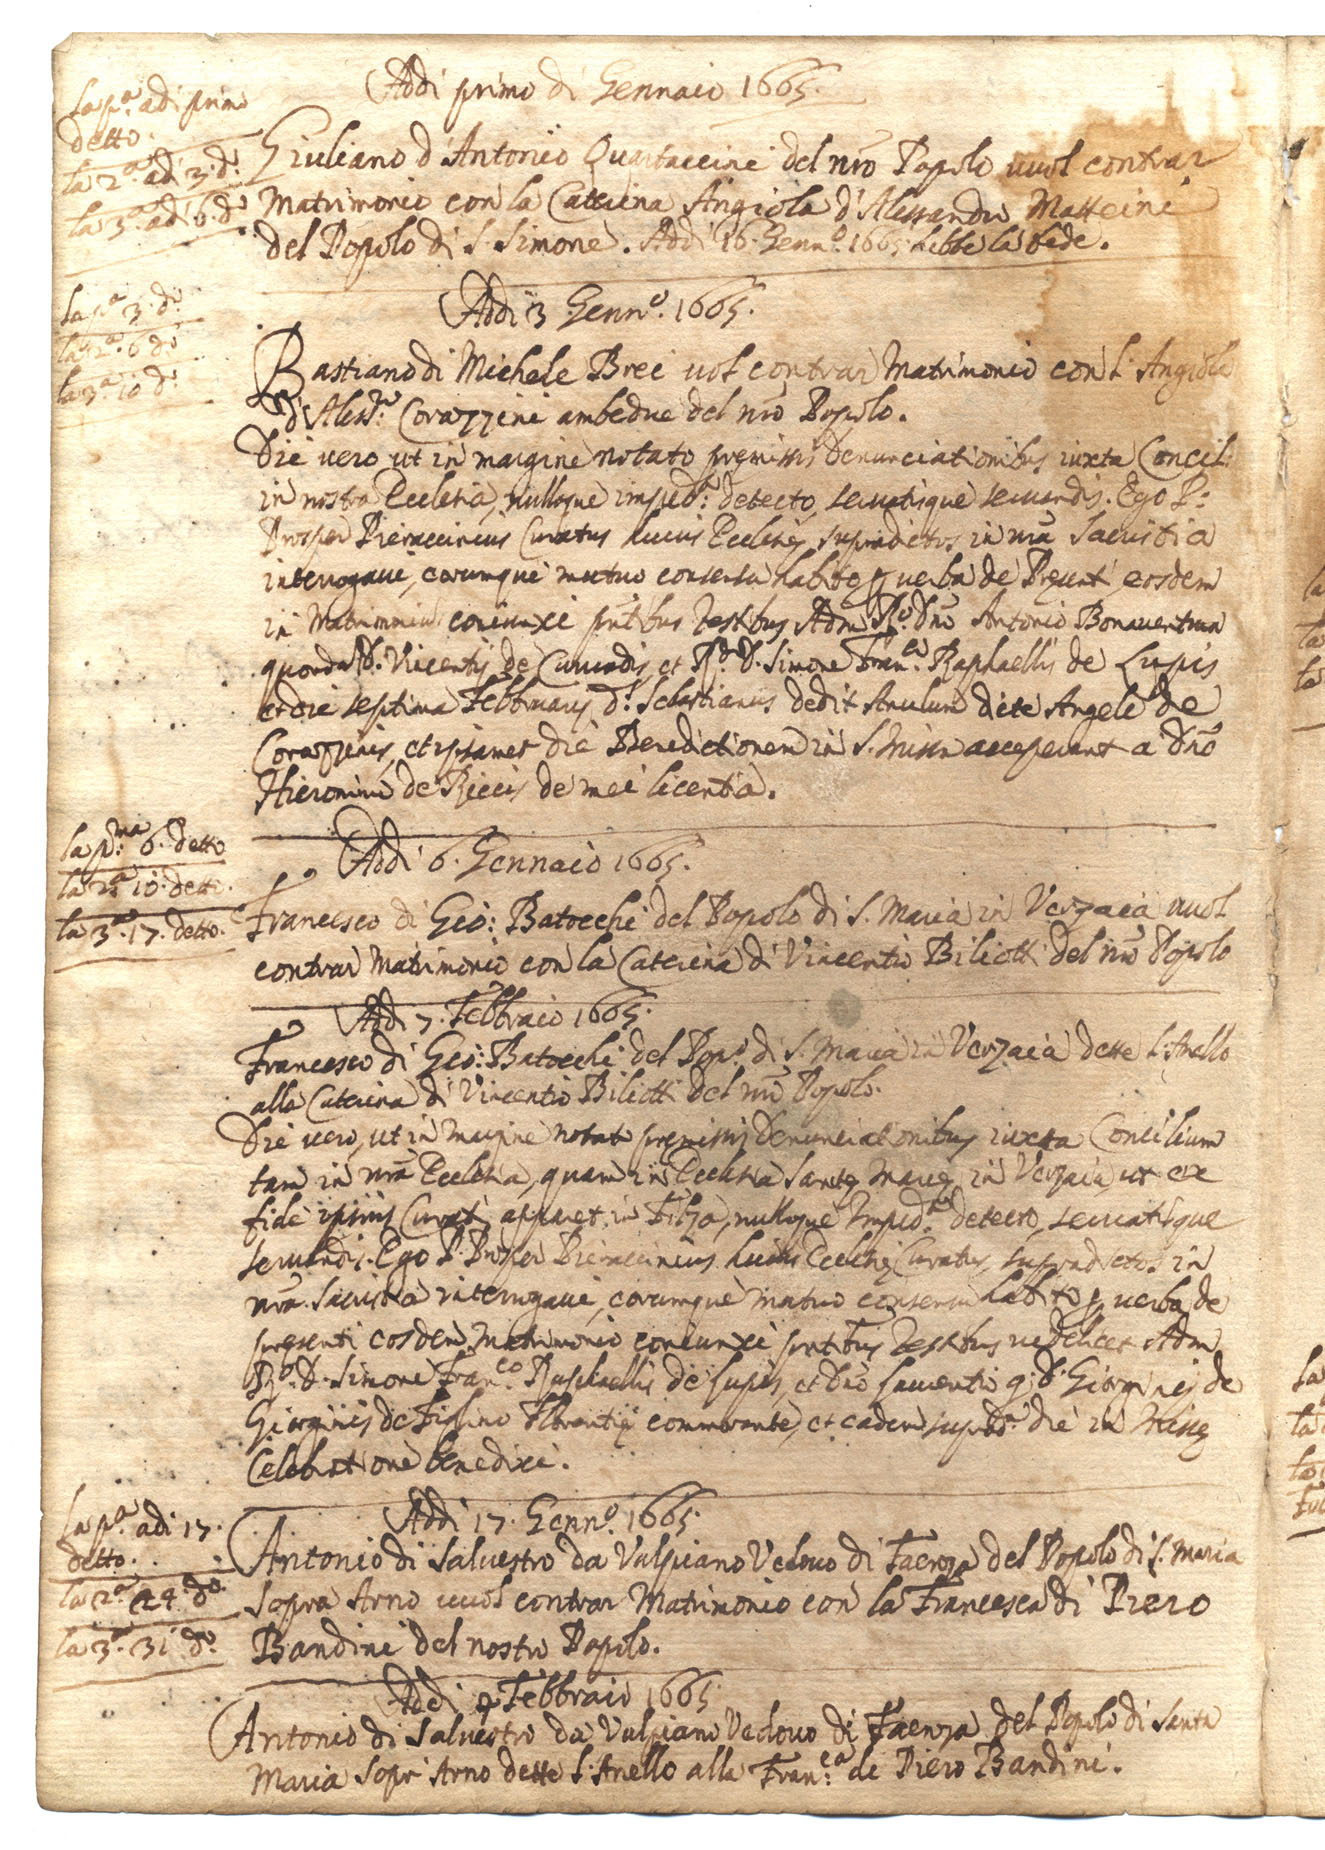 Addi primo di Gennaio 1665.
la pa. adi primo
detto.
la 2a. adi 3. do.
la 3a. adi 6. do.
Giuliano d'Antonio Quartaccini del nro Popolo vuol contrar
Matrimonio con la Caterina Angiola d'Alessandro Matteini
del Popolo di S. Simone. Addi 16. Genno. 1665. hebbe la fede.
Addi 3. Genno. 1665.
la pa. 3. do.
la 2a. 6 do.
la 3a. 10 do.
Bastiano di Michele Breci vol contrar Matrimonio con l'Angiola
d'Alessro. Corazzini ambedue del nro Popolo.
Die vero ut in margine notato premissis denunciationibus iuxta Concil:
in nostra Ecclesia, nulloque impedto. detecto, servatisque servandis. Ego P.
Prosper Pieraccinius Curatus huius Ecclesię, supradictos in nra Sacristia
interrogavi, eorumque mutuo consensu habito p verba de Presenti eosdem
in Matrimoniu coniunxi pntibus Testibus Adm Rdo. Dno Antonio Bonaventura
quondam D. Vincentij de Cunradis, et Rdo. D. Simone Franco. Raphaellis de Lupis
et die septima Februarij Ds. Sebastianus dedit Anulum dicte Angele de
Corazzinis, et ipsamet die Benedictionem in S. Missa acceperunt a Dno
Hieronimo de Riccis de mei licentia.
Addi 6. Gennaio 1665.
la pma. 6. detto
la 2a. 10. detto.
la 3a. 17. detto.
Francesco di Gio: Batocchi del Popolo di S. Maria in Verzaia vuol
contrar Matrimonio con la Caterina di Vincentio Biliotti del nro Popolo
Addi 7. Febbraio 1665.
Francesco di Gio: Batocchi del Popo. di S. Maria in Verzaia dette l'Anello
alla Caterina di Vincentio Biliotti del nro Popolo.
Die vero, ut in margine notat premissis Denunciationibus iuxta Concilium
tam in nra Ecclesia, quam in Ecclesia Sancte Marie in Verzaia, ut ex
fide ipsius Curati apparet in Filza, nulloque Impedto. detecto, servatisque
servandis. Ego P. Prosper Pieraccinius huius Ecclesię Curatus, supradictos in
nra Sacristia interrogavi, eorumque mutuo consensu habito p verba de
presenti eosdem Matrimonio coniunxi pntibus Testibus videlicet Adm
Rdo. D. Simone Franco. Raphaellis de Lupis, et Dno Laurentio q. D. Giorginij de
Giorginis de Fislino Florentię commorante, et eadem suprada. die in Missę
Celebratione benedixi.
Addi 17. Genno. 1665.
la pa. adi 17.
detto.
la 2a. 24. do.
la 3a. 31 do.
Antonio di Salvestro da Vulpiano Vedovo di Faenza del Popolo di S. Maria
Sopra Arno vuol contrar Matrimonio con la Francesca di Piero
Bandini del nostro Popolo.
Addi 9 Febbraio 1665.
Antonio di Salvestro da Vulpiano Vedovo di Faenza del Popolo di Santa
Maria Sopr'Arno dette l'Anello alla Franca. di Piero Bandini.